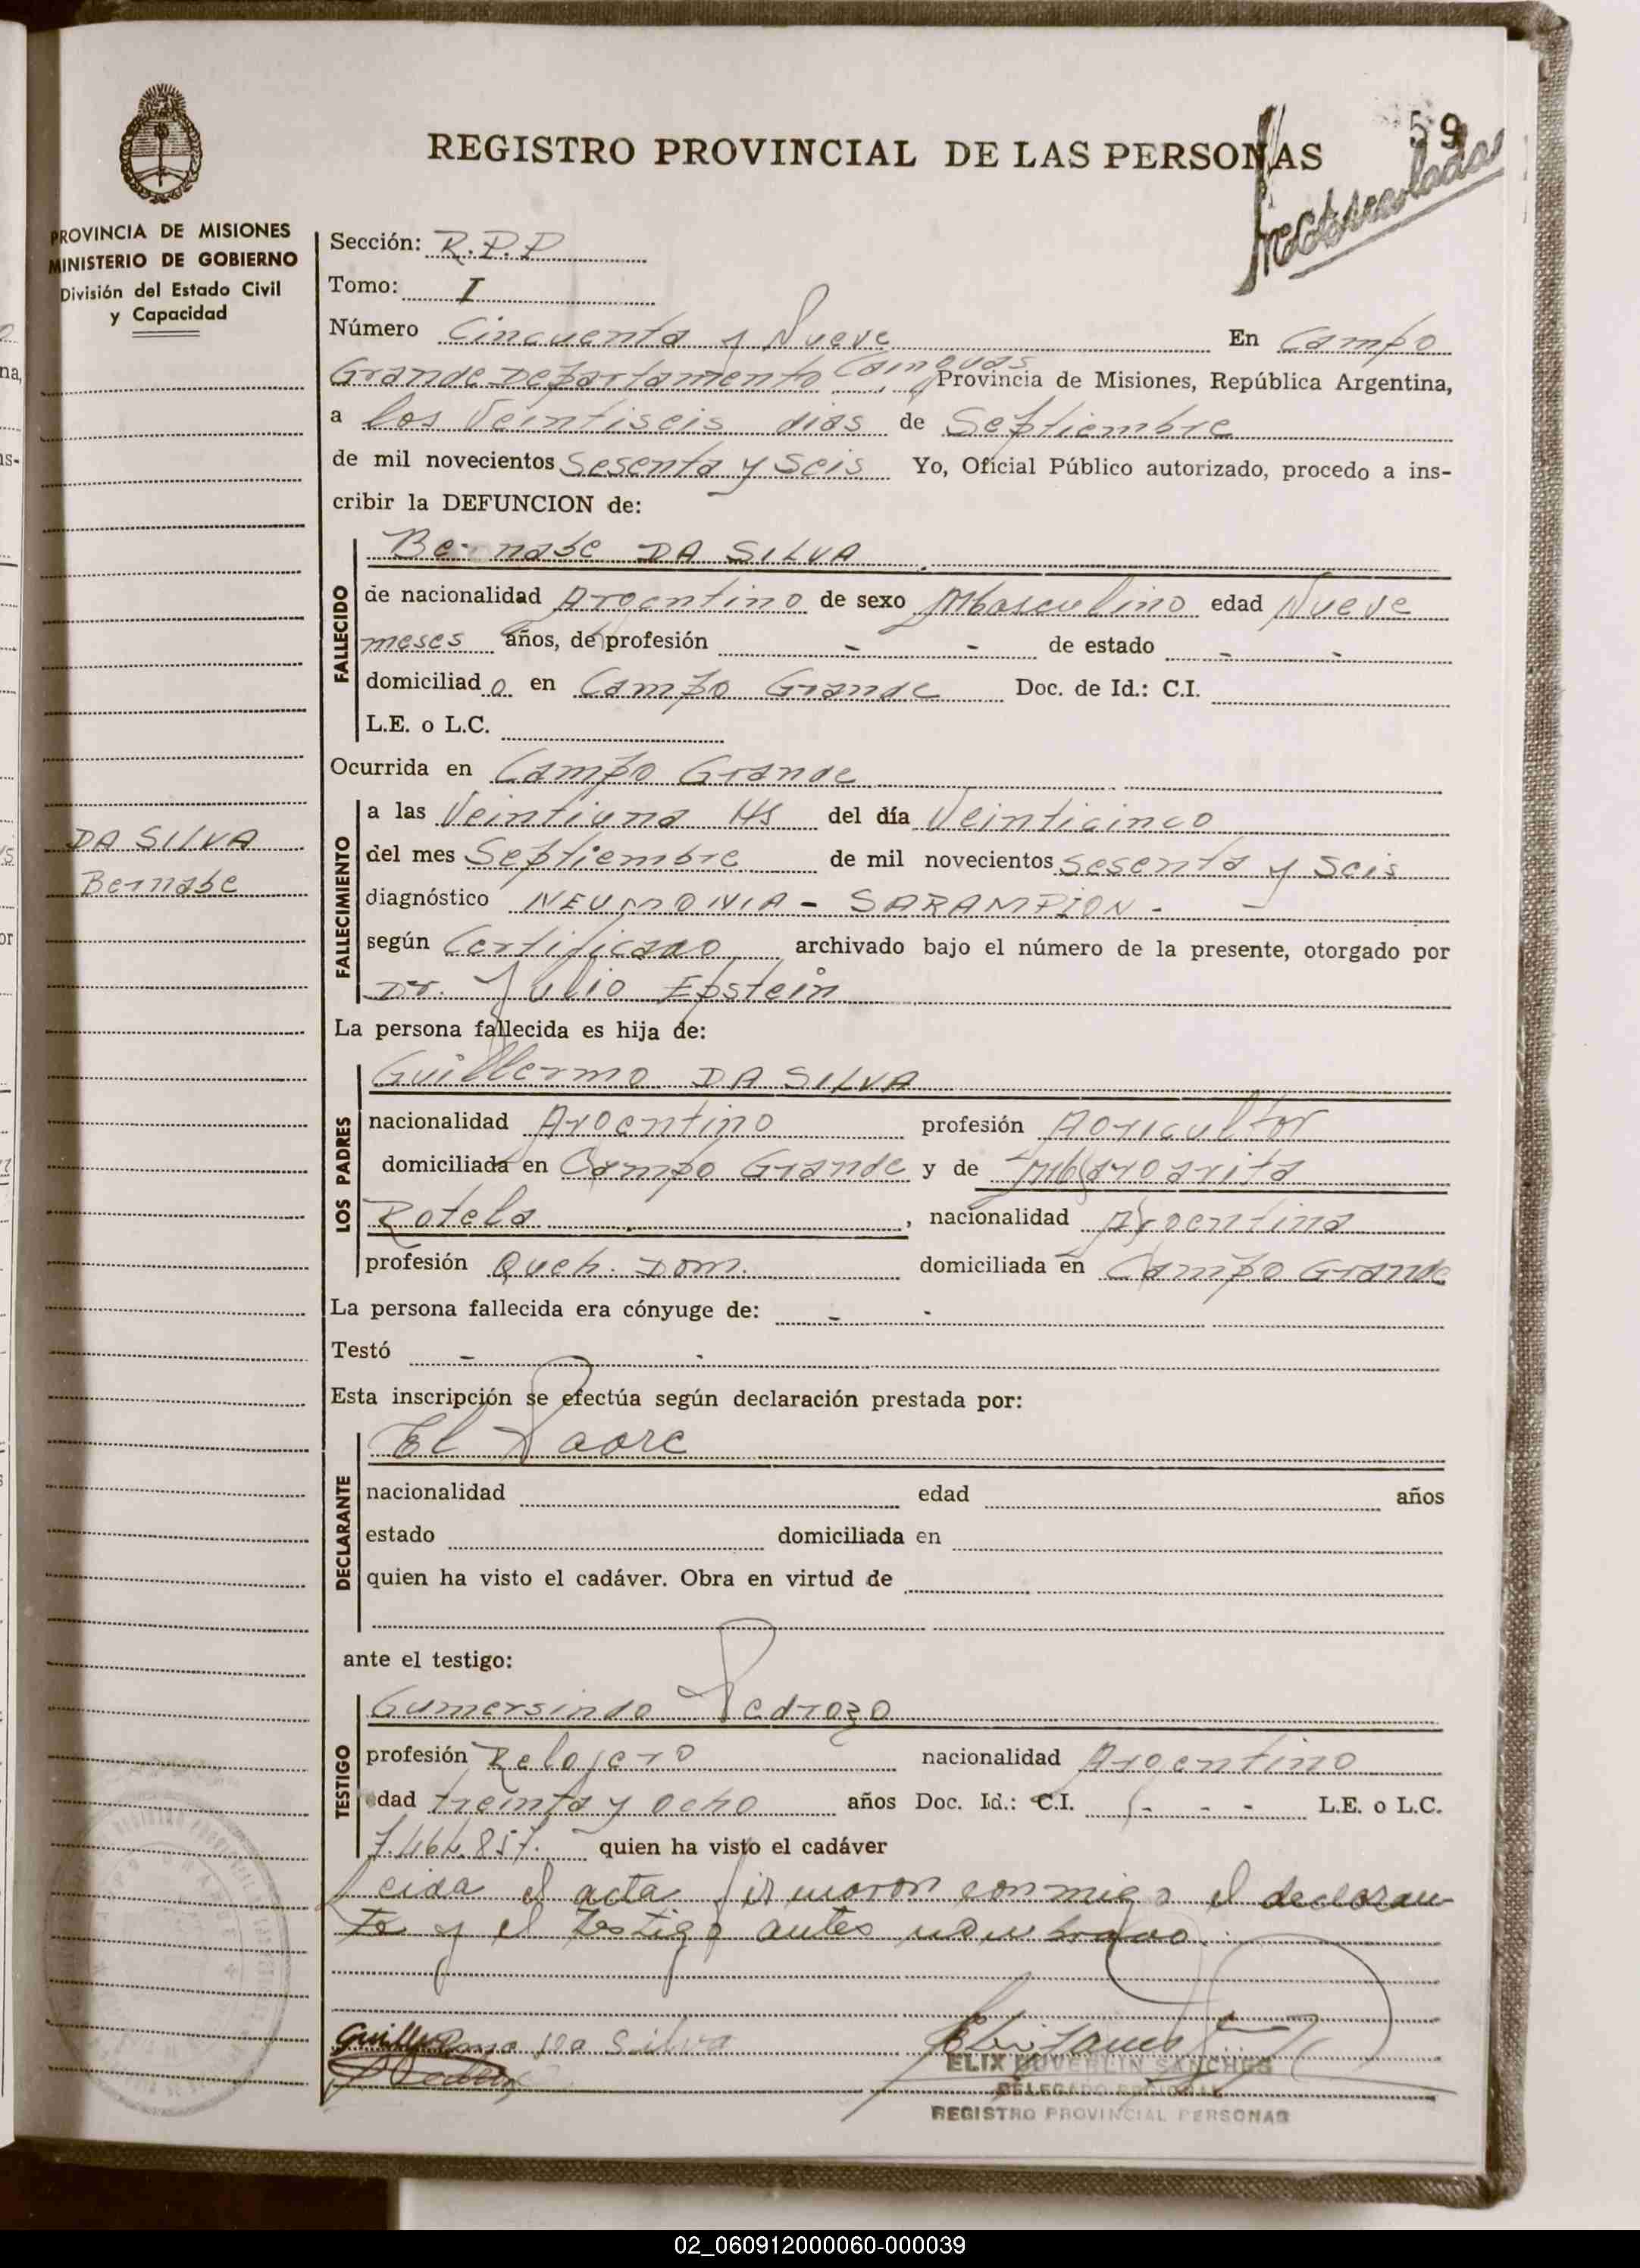 59
REGISTRO PROVINCIAL DE LAS PERSONAS
PROVINCIA DE MISIONES
MINISTERIO DE GOBIERNO
División del Estado Civil
y Capacidad
Sección: R.P.P
Tomo: I
Número Cincuenta y Nueve En Campo
Grande Departamento Cainguas, Provincia de Misiones, República Argentina,
a los Veintiseis dias de Septiembre
de mil novecientos Sesenta y Seis Yo, Oficial Público autorizado, procedo a ins-
cribir la DEFUNCION de:
FALLECIDO
Bernabe DA SILVA
de nacionalidad Argentino de sexo Masculino edad Nueve
meses años, de profesión - - de estado - -
domiciliado en Campo Grande Doc. de Id.: C.I.
L.E. o L.C.
Ocurrida en Campo Grande
FALLECIMIENTO
a las Veintiuna Hs del día Veinticinco
del mes Septiembre de mil novecientos Sesenta y Seis
diagnóstico NEUMONIA - SARAMPION -
según Certificado archivado bajo el número de la presente, otorgado por
Dr. Julio Epstein
DA SILVA
Bernabe
La persona fallecida es hija de:
LOS PADRES
Guillermo DA SILVA
nacionalidad Argentino profesión Agricultor
domiciliada en Campo Grande y de Margarita
Rotela, nacionalidad Argentina
profesión Queh. Dom. domiciliada en Campo Grande
La persona fallecida era cónyuge de: - -
Testó - -
Esta inscripción se efectúa según declaración prestada por:
DECLARANTE
El Padre
nacionalidad edad años
estado domiciliada en
quien ha visto el cadáver. Obra en virtud de
ante el testigo:
TESTIGO
Gumersindo Pedrozo
profesión Relojero nacionalidad Argentino
edad treinta y ocho años Doc. Id.: C.I. - - - L.E. o L.C.
7.464.857. quien ha visto el cadáver
Leida el acta firmaron conmigo el declaran-
te y el testigo antes nombrado.
Guillermo Da Silva
ELIX DUVERLIN SANCHES
DELEGADO REGIONAL
REGISTRO PROVINCIAL PERSONAS
02_060912000060-000039